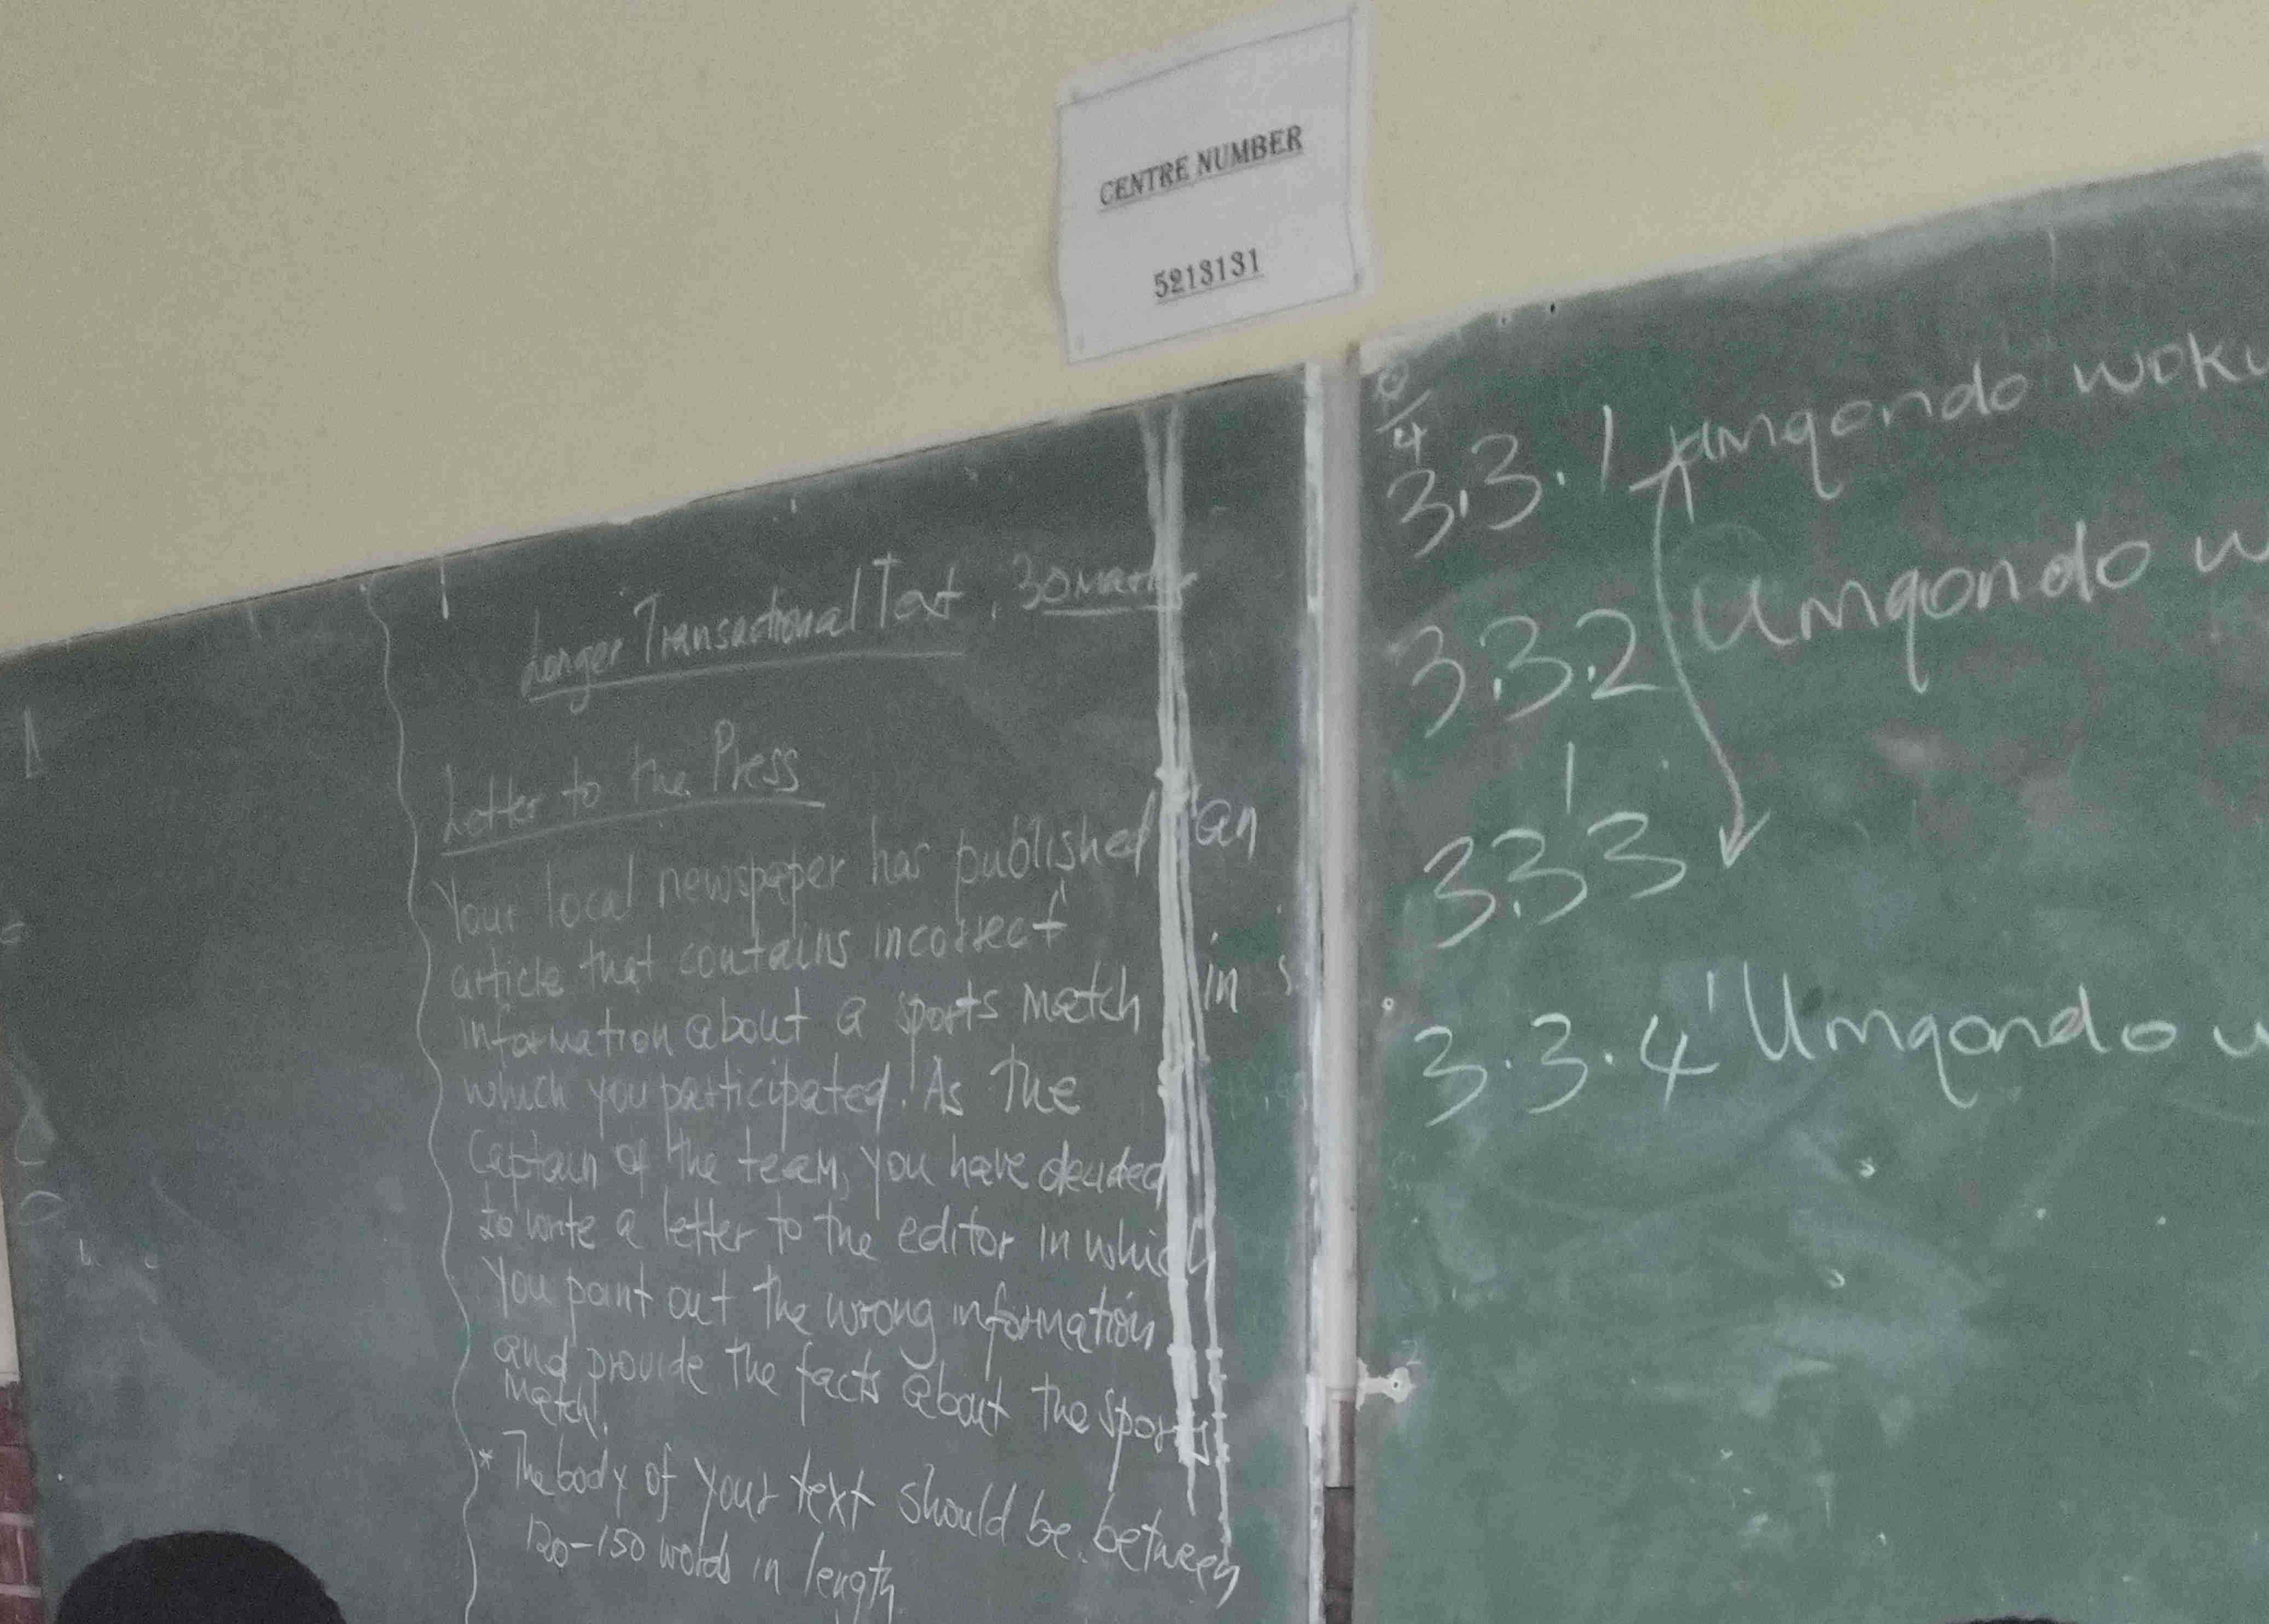 CENTRE NUMBER
5213131
Longer Transactional Text. 30 marks
Letter to the Press
Your local newspaper has published an
article that contains incorrect
information about a sports match in
which you participated. As the
Captain of the team, you have decided
to write a letter to the editor in which
You point out the wrong information
and provide the facts about the sports
match.
* The body of your text should be between
120-150 words in length
4
3.3.1 Umqondo woku
3.3.2 Umqondo w
3.3.3
3.3.4 Umqondo w